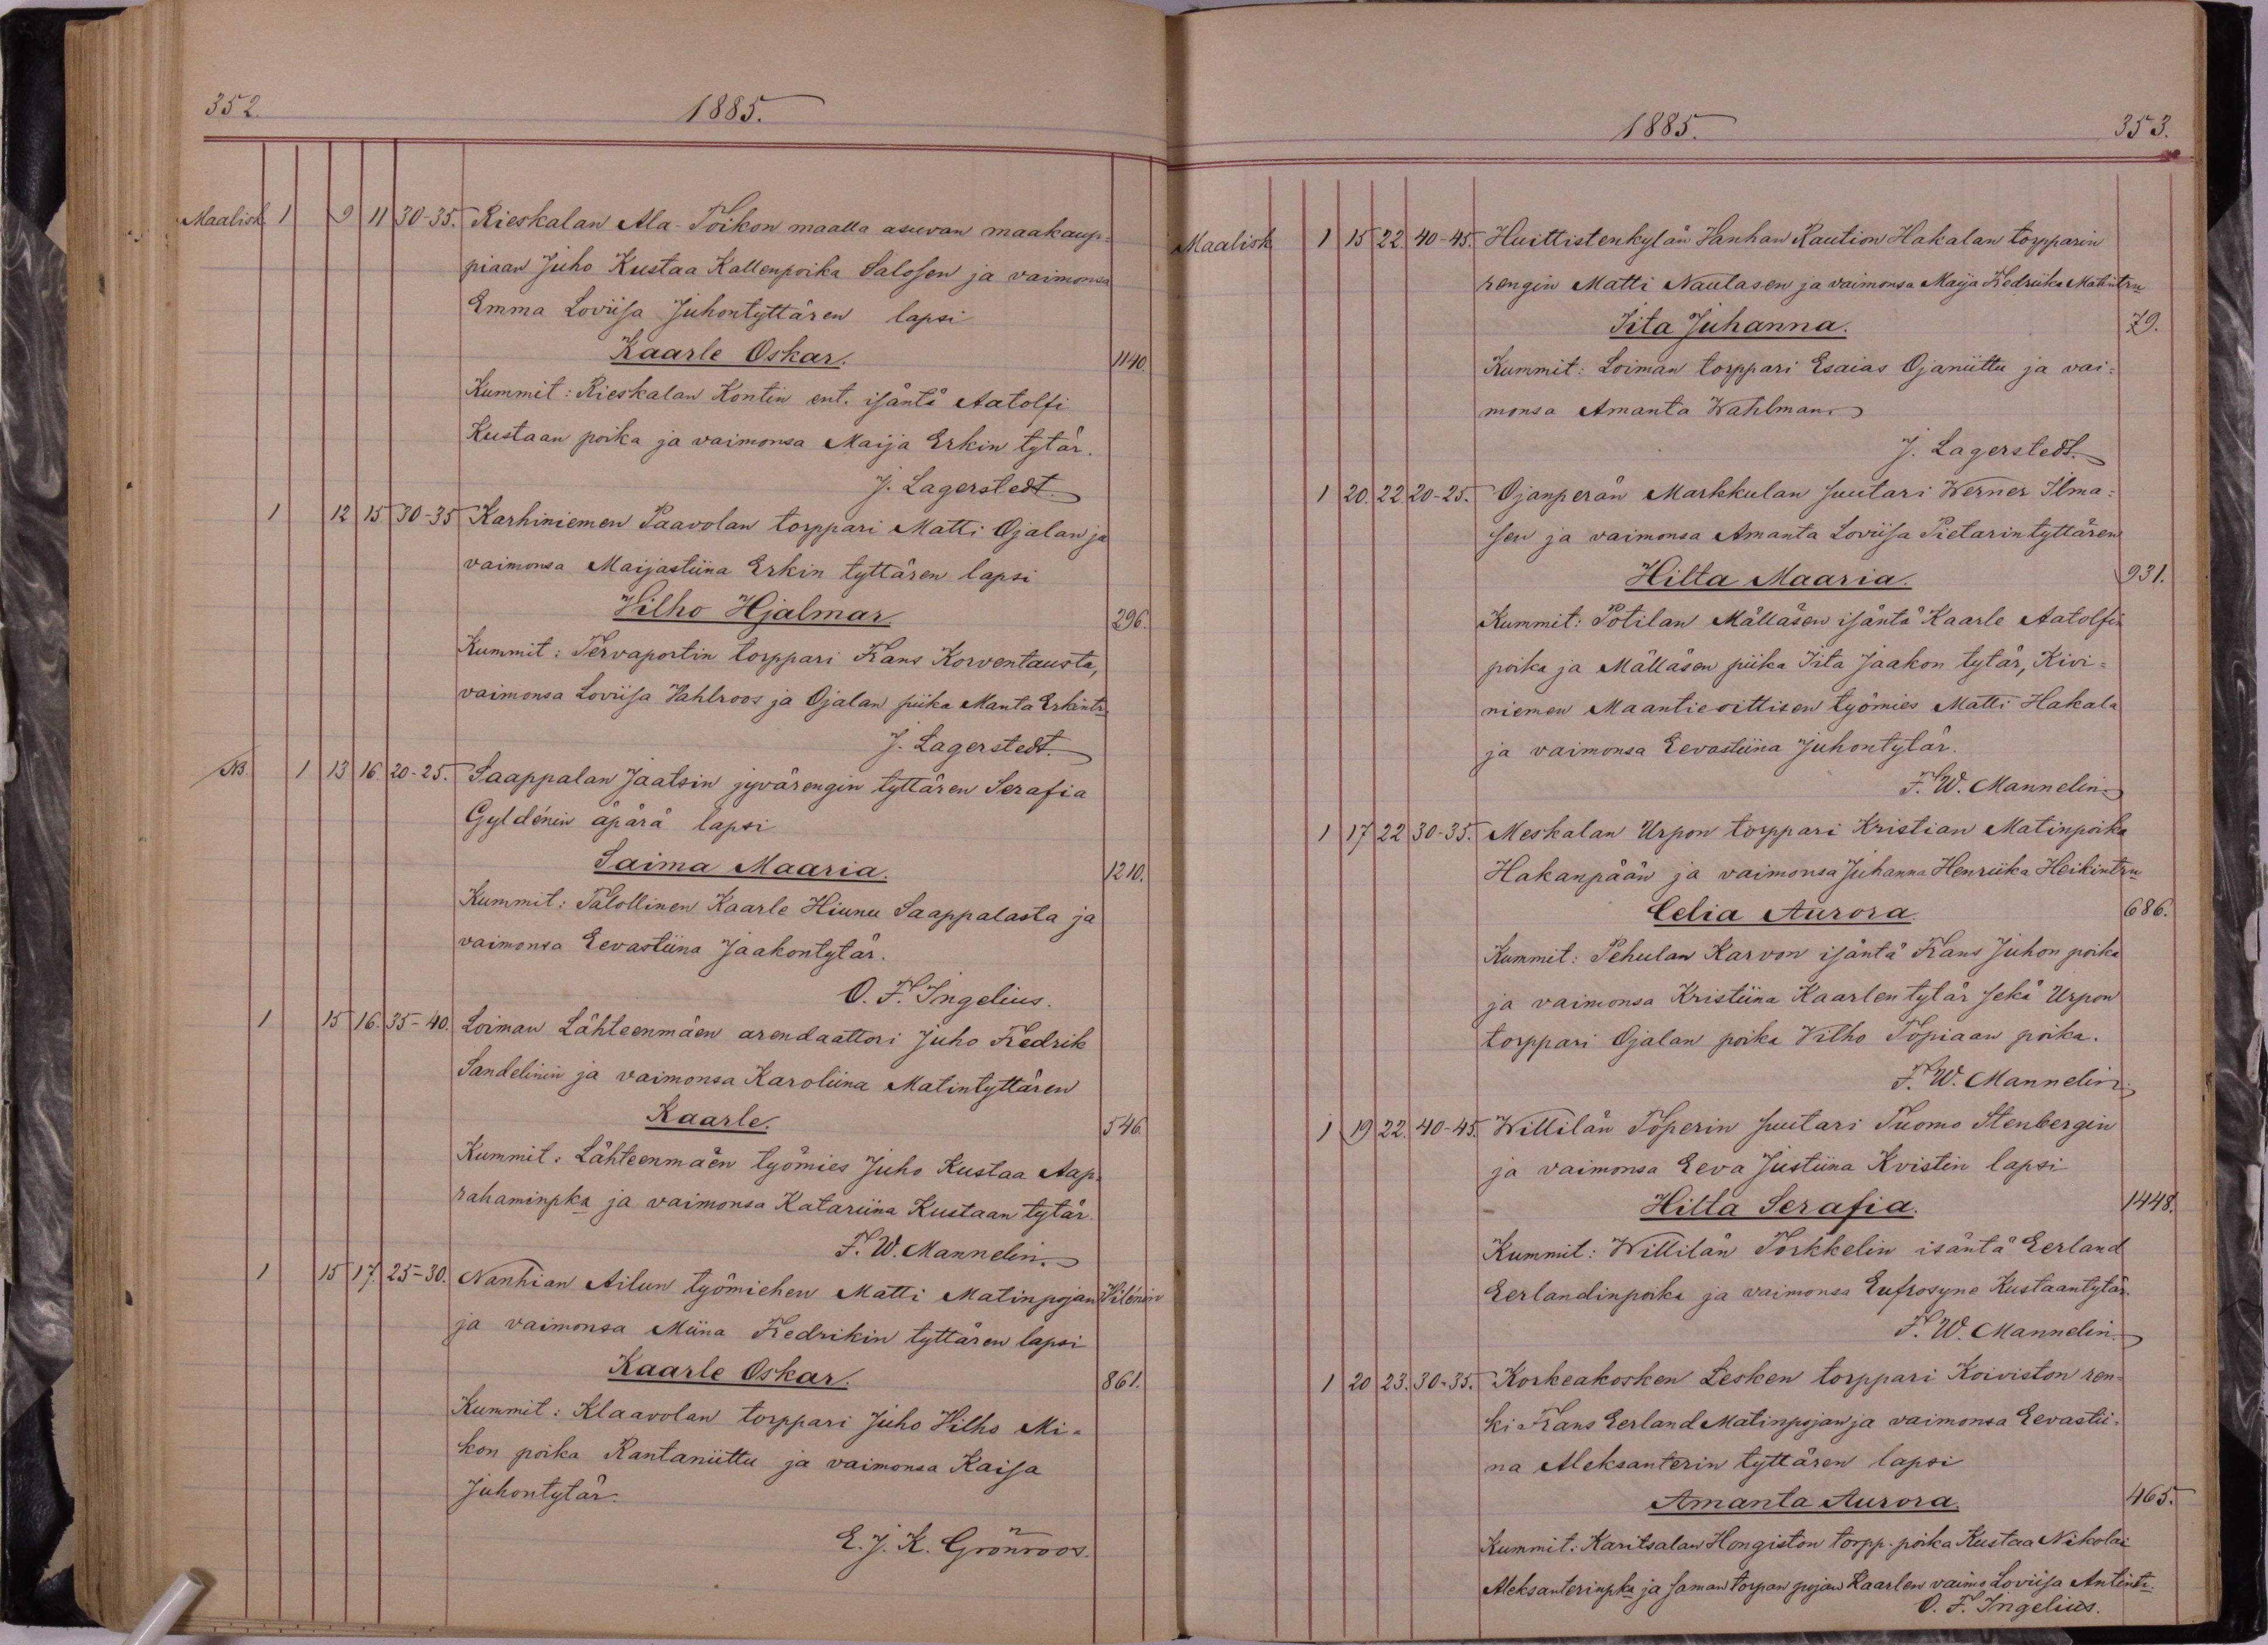 352.
1885.
Maalisk. 1 9 11 30-35. Rieskalan Ala-Toikon maalla asuvan maakaup=
piaan Juho Kustaa Kallenpoika Salosen ja vaimonsa
Emma Loviisa Juhontyttären lapsi
Kaarle Oskar. 1140.
Kummit: Rieskalan Kontin ent. isäntä Aatolfi
Kustaan poika ja vaimonsa Maija Erkin tytär.
J. Lagerstedt.
1 12 15 30-35 Karhiniemen Paavolan torppari Matti Ojalan ja
vaimonsa Maijastiina Erkin tyttären lapsi
Vilho Hjalmar. 296.
Kummit: Tervaportin torppari Frans Korventausta,
vaimonsa Loviisa Vahlroos ja Ojalan piika Manta Erkintr.
J. Lagerstedt.
NB. 1 13 16. 20-25. Saappalan Jaatsin jyvärengin tyttären Serafia
Gyldénin äpärä lapsi
Saima Maaria. 1210.
Kummit: Talollinen Kaarle Hiunu Saappalasta ja
vaimonsa Eevastiina Jaakontytär.
O. F. Ingelius.
1 15 16. 35-40. Loiman Lähteenmäen arendaattori Juho Fredrik
Sandelinin ja vaimonsa Karoliina Matintyttären
Kaarle. 546.
Kummit: Lähteenmäen työmies Juho Kustaa Aap=
rahaminpka ja vaimonsa Katariina Kustaan tytär.
F. W. Mannelin.
1 15 17. 25-30. Nanhian Ailun työmiehen Matti Matinpojan Vilénin
ja vaimonsa Miina Fredrikin tyttären lapsi
Kaarle Oskar. 861.
Kummit: Klaavolan torppari Juho Vilho Mi=
kon poika Rantaniittu ja vaimonsa Kaisa
Juhontytär.
E. J. K. Grönroos.
1885.
353.
Maalisk 1 15 22. 40-45. Huittistenkylän Vanhan Raution Hakalan torpparin
rengin Matti Nautasen ja vaimonsa Maija Fredriika Matintrn
Iita Juhanna. 79.
Kummit: Loiman torppari Esaias Ojaniittu ja vai=
monsa Amanta Wahlman.
J. Lagerstedt.
1 20. 22. 20-25. Ojanperän Markkulan suutari Werner Ilma=
sen ja vaimonsa Amanta Loviisa Pietarintyttären
Hilta Maaria. 931.
Kummit: Potilan Mälläsen isäntä Kaarle Aatolfin
poika ja Mälläsen piika Iita Jaakon tytär, Kivi=
niemen Maantieoittisen työmies Matti Hakala
ja vaimonsa Eevastiina Juhontytär.
F. W. Mannelin.
1 17 22 30-35. Meskalan Urpon torppari Kristian Matinpoika
Hakanpään ja vaimonsa Juhanna Henriika Heikintrn
Celia Aurora. 686.
Kummit: Pehulan Karvon isäntä Frans Juhon poika
ja vaimonsa Kristiina Kaarlen tytär sekä Urpon
torppari Ojalan poika Vilho Topiaan poika.
F. W. Mannelin.
1 19 22. 40-45. Wittilän Töperin suutari Tuomo Stenbergin
ja vaimonsa Eeva Justiina Kvistin lapsi
Hilta Serafia. 1448.
Kummit: Wittilän Torkkelin isäntä Eerland
Eerlandinpoika ja vaimonsa Eufrosyne Kustaantytär.
F. W. Mannelin.
1 20 23. 30-35. Korkeakosken Lesken torppari Koiviston ren=
ki Frans Eerland Matinpojan ja vaimonsa Eevastii=
na Aleksanterin tyttären lapsi
Amanta Aurora. 465.
Kummit: Karitsalan Hongiston torpp. poika Kustaa Nikolai
Aleksanterinpka ja saman torpan pojan Kaarlen vaimo Loviisa Antintr.
O. F. Ingelius.